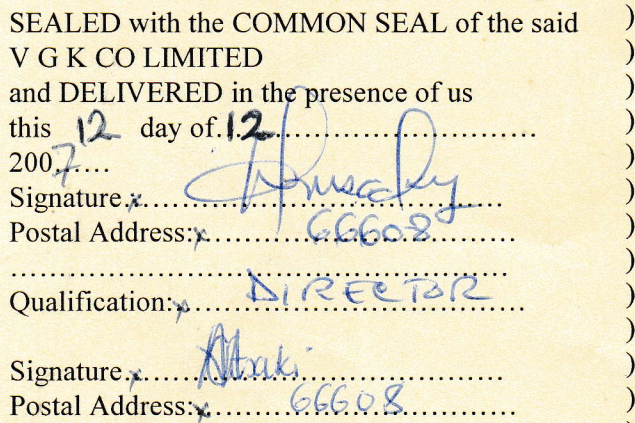 SEALED with the COMMON SEAL of the said )
V G K CO LIMITED )
and DELIVERED in the presence of us )
this 12 day of 12............................... )
2007...... )
Signature x................................................ )
Postal Address:x..........66608............ )
.................................................................. )
Qualification:x........DIRECTOR........ )
)
Signature x................................................ )
Postal Address:x..........66608............ )